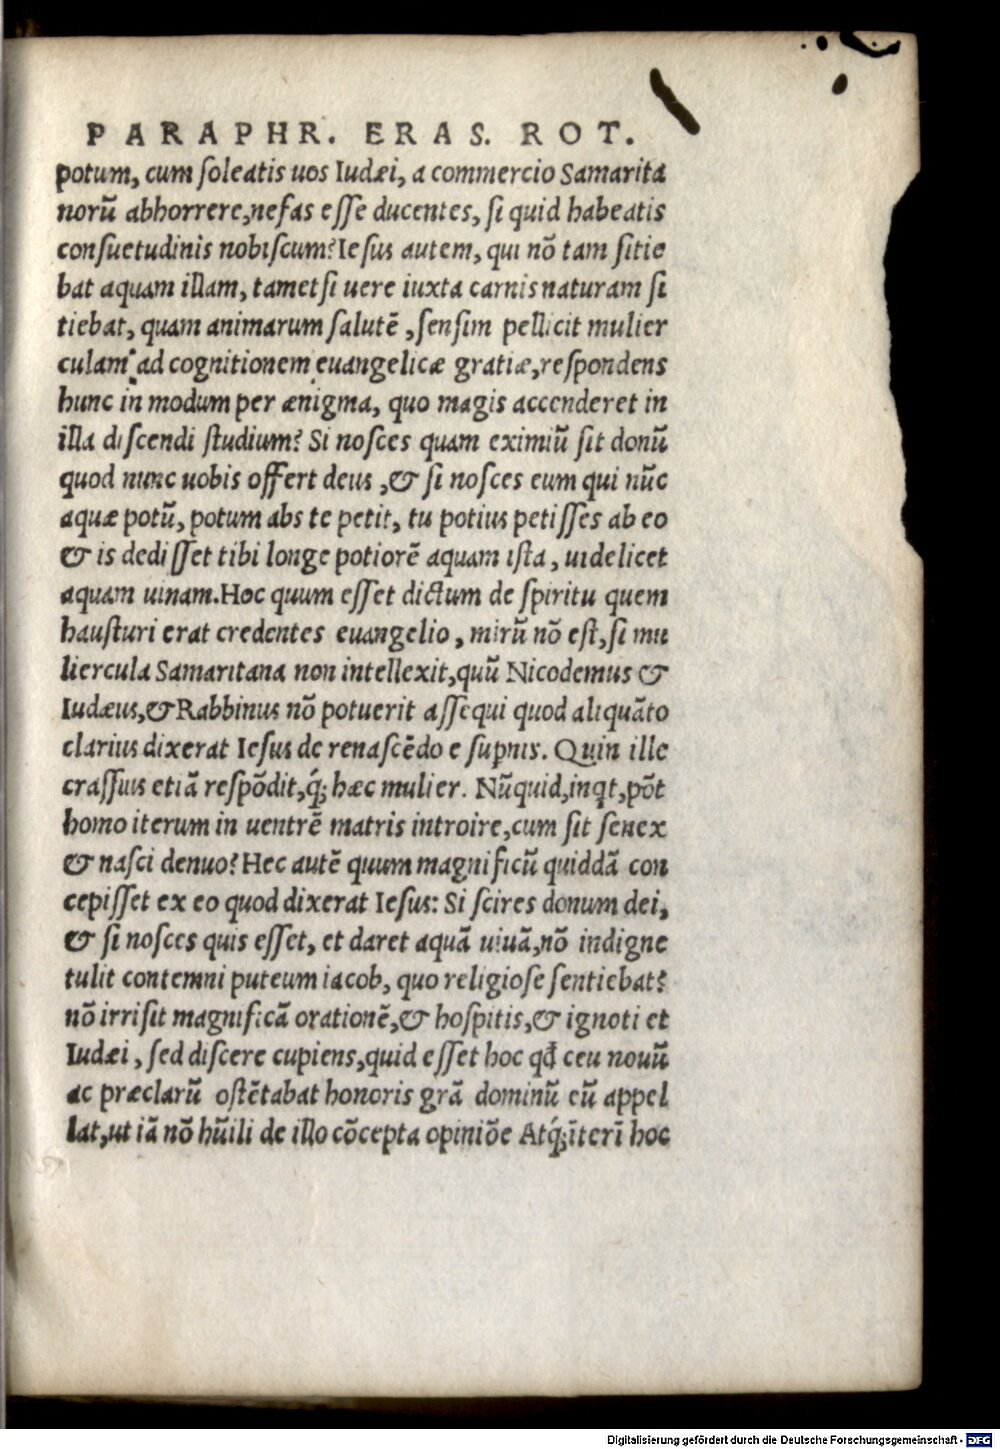 PARAPHR. ERAS. ROT.
potum, cum ſoleatis uos Iudæi, a commercio Samarita
norũ abhorrere, nefas eſſe ducentes, ſi quid habeatis
conſuetudinis nobiſcum? Ieſus autem, qui nõ tam ſitie
bat aquam illam, tametſi uere iuxta carnis naturam ſi
tiebat, quam animarum ſalutẽ, ſenſim pellicit mulier
culam ad cognitionem euangelicæ gratiæ, reſpondens
hunc in modum per ænigma, quo magis accenderet in
illa diſcendi ſtudium? Si noſces quam eximiũ ſit donũ
quod nunc uobis offert deus, & ſi noſces eum qui nũc
aquæ potũ, potum abs te petit, tu potius petiſſes ab eo
& is dediſſet tibi longe potiorẽ aquam iſta, uidelicet
aquam uiuam. Hoc quum eſſet dictum de ſpiritu quem
hauſturi erat credentes euangelio, mirũ nõ eſt, ſi mu
liercula Samaritana non intellexit, quũ Nicodemus &
Iudæus, & Rabbinus nõ potuerit aſſequi quod aliquãto
clarius dixerat Ieſus de renaſcẽdo e ſupnis. Quin ille
craſſius etiã reſpõdit, q́; hæc mulier. Nũquid, inqt, põt
homo iterum in uentrẽ matris introire, cum ſit ſenex
& naſci denuo? Hec autẽ quum magnificũ quiddã con
cepiſſet ex eo quod dixerat Ieſus: Si ſcires donum dei,
& ſi noſces quis eſſet, et daret aquã uiuã, nõ indigne
tulit contemni puteum iacob, quo religioſe ſentiebat?
nõ irriſit magnificã orationẽ, & hoſpitis, & ignoti et
Iudæi, ſed diſcere cupiens, quid eſſet hoc qđ ceu nouũ
ac præclarũ oſtẽtabat honoris grã dominũ eũ appel
lat, ut iã nõ hũili de illo cõcepta opiniõe Atq́; ĩterĩ hoc
Digitalisierung gefördert durch die Deutsche Forschungsgemeinschaft - DFG